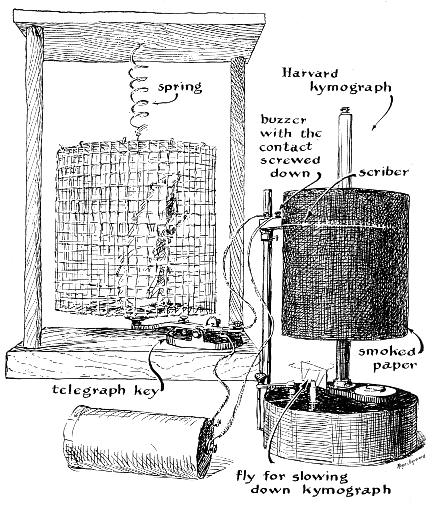 spring
Harvard
kymograph
buzzer
with the
contact
screwed
down
scriber
smoked
paper
telegraph key
fly for slowing
down kymograph